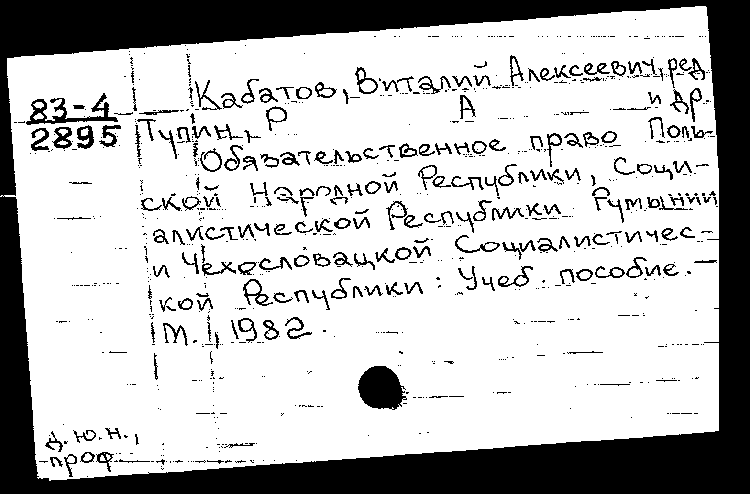 83-4
2895
Кабатов, Виталий Алексеевич, ред
Тупин, Р А и др
Обязательственное право Поль-
ской Народной Республики, Соци-
алистической Республики Румынии
и Чехословацкой Социалистичес-
кой Республики: Учеб. пособие. -
М., 1982.
д. ю. н.,
проф